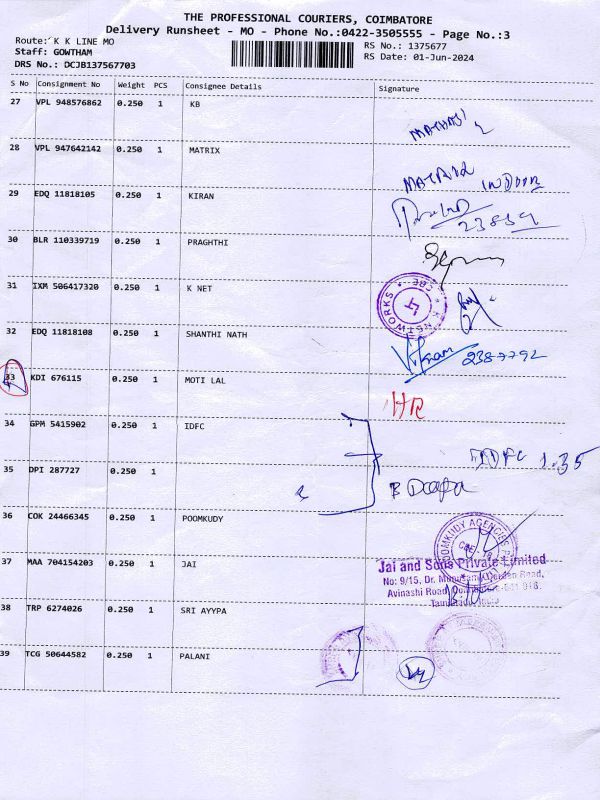 THE PROFESSIONAL COURIERS, COIMBATORE
Delivery Runsheet - MO - Phone No.:0422-3505555 - Page No.:3
Route: K K LINE MO
Staff: GOWTHAM
DRS No.: DCJB137567703
RS No.: 1375677
RS Date: 01-Jun-2024
S No Consignment No Weight PCS Consignee Details Signature
27 VPL 948576862 0.250 1 KB
28 VPL 947642142 0.250 1 MATRIX
29 EDQ 11818105 0.250 1 KIRAN
30 BLR 110339719 0.250 1 PRAGHTHI
31 IXM 506417320 0.250 1 K NET
K NETWORKS * CBE *
32 EDQ 11818108 0.250 1 SHANTHI NATH
2387792
33 KDI 676115 0.250 1 MOTI LAL
HR
34 GPM 5415902 0.250 1 IDFC
IDFC 1.35
35 DPI 287727 0.250 1
36 COK 24466345 0.250 1 POOMKUDY
POOMKUDY AGENCIES
37 MAA 704154203 0.250 1 JAI
Jai and Sons Private Limited
No: 9/15, Dr. Road,
Avinashi Road,
38 TRP 6274026 0.250 1 SRI AYYPA
39 TCG 50644582 0.250 1 PALANI